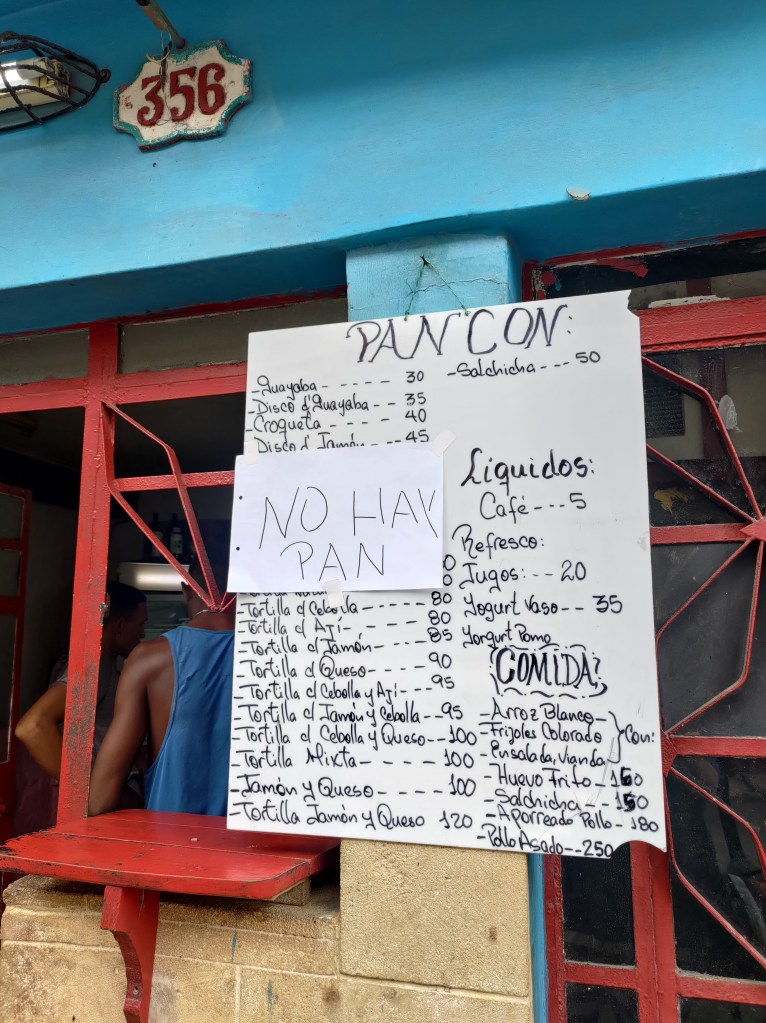 356
PAN CON:
-Guayaba ----- 30
-Disco d' Guayaba -- 35
-Croqueta ---- 40
Disco d Jamón -- 45
NO HAY
PAN
Tortilla d Cebolla ------ 80
-Tortilla d Ají ------ 80
-Tortilla d Jamón ----- 85
-Tortilla d Queso ---- 90
-Tortilla d Cebolla y Ají --- 95
-Tortilla d Jamón y Cebolla -- 95
-Tortilla d Cebolla y Queso -- 100
-Tortilla Mixta ------ 100
-Jamón y Queso ------ 100
-Tortilla Jamón y Queso 120
-Salchicha --- 50
Liquidos:
Café --- 5
Refresco:
Jugos: -- 20
Yogurt Vaso -- 35
Yorgurt Pomo
COMIDA
-Arroz Blanco
-Frijoles Colorado
Ensalada, Vianda
Con:
-Huevo Frito - 150
-Salchicha - 150
-Aporreado Pollo - 180
-Pollo Asado -- 250